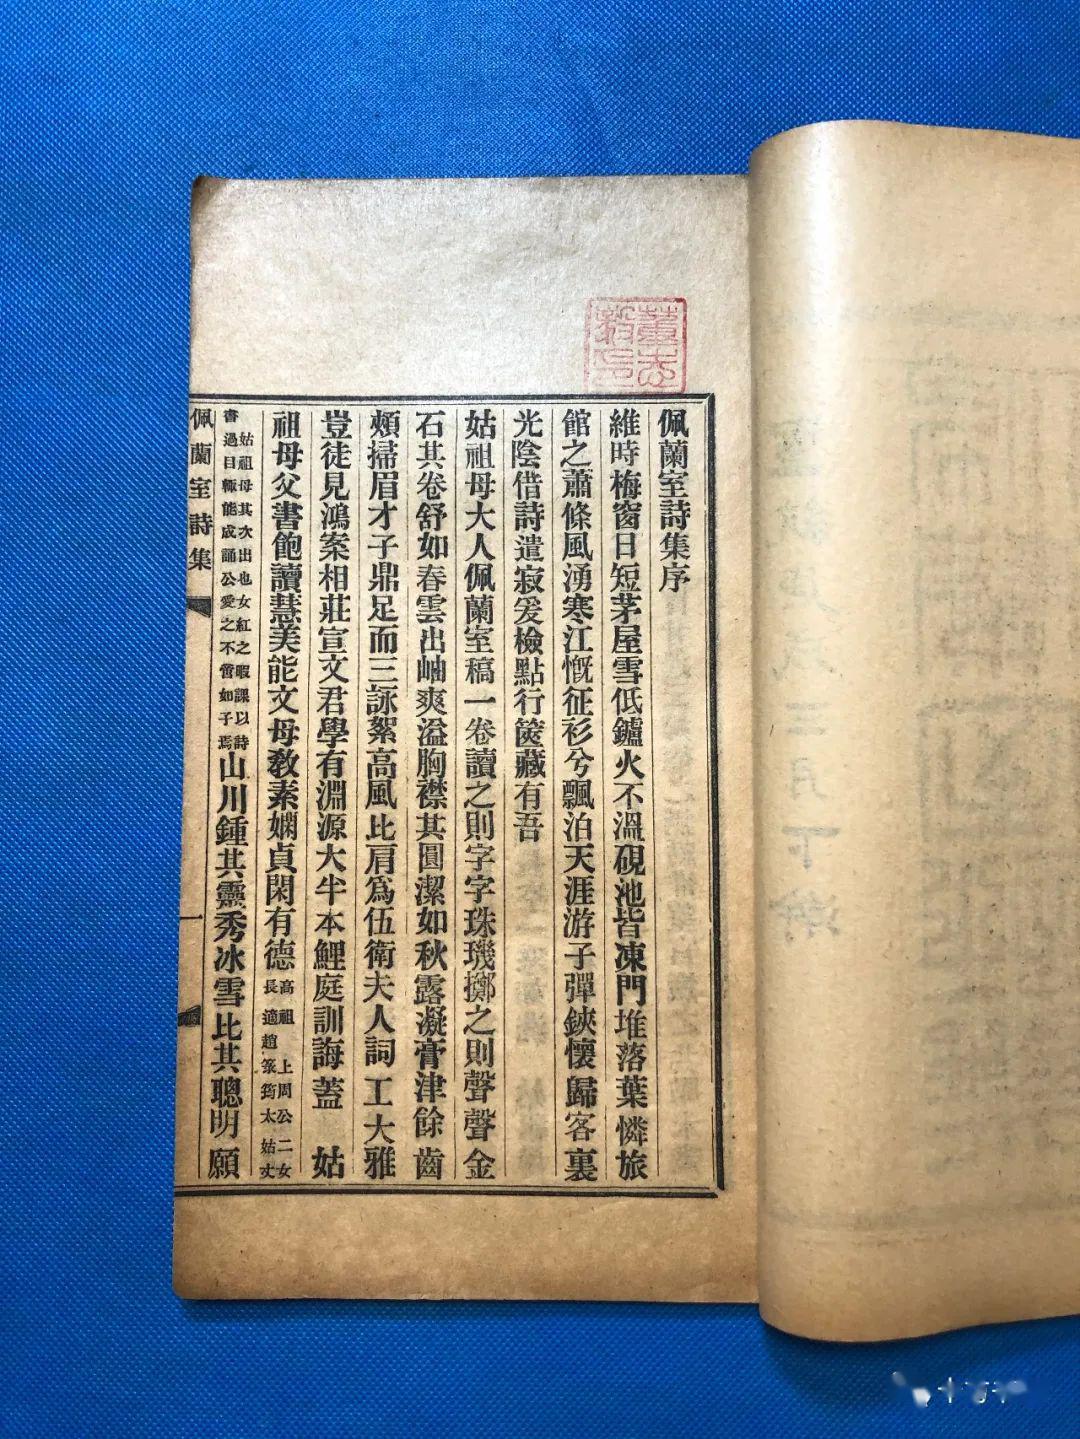 董志毅印
佩蘭室詩集序
維時梅窗日短茅屋雪低鑪火不溫硯池皆凍門堆落葉憐旅
館之蕭條風湧寒江慨征衫兮飄泊天涯游子彈鋏懷歸客裏
光陰借詩遣寂爰檢點行篋藏有吾
姑祖母大人佩蘭室稿一卷讀之則字字珠璣擲之則聲聲金
石其卷舒如春雲出岫爽溢胸襟其圓潔如秋露凝膏津餘齒
頰掃眉才子鼎足而三詠絮高風比肩爲伍衛夫人詞工大雅
豈徒見鴻案相莊宣文君學有淵源大半本鯉庭訓誨蓋 姑
祖母父書飽讀慧美能文母敎素嫻貞閑有德
高祖 上周公二女
長適趙箓筠太姑丈
姑祖母其次出也女紅之暇課以詩
書過目輒能成誦公愛之不啻如子焉
山川鍾其靈秀冰雪比其聰明願
佩蘭室詩集 一
三月下澣